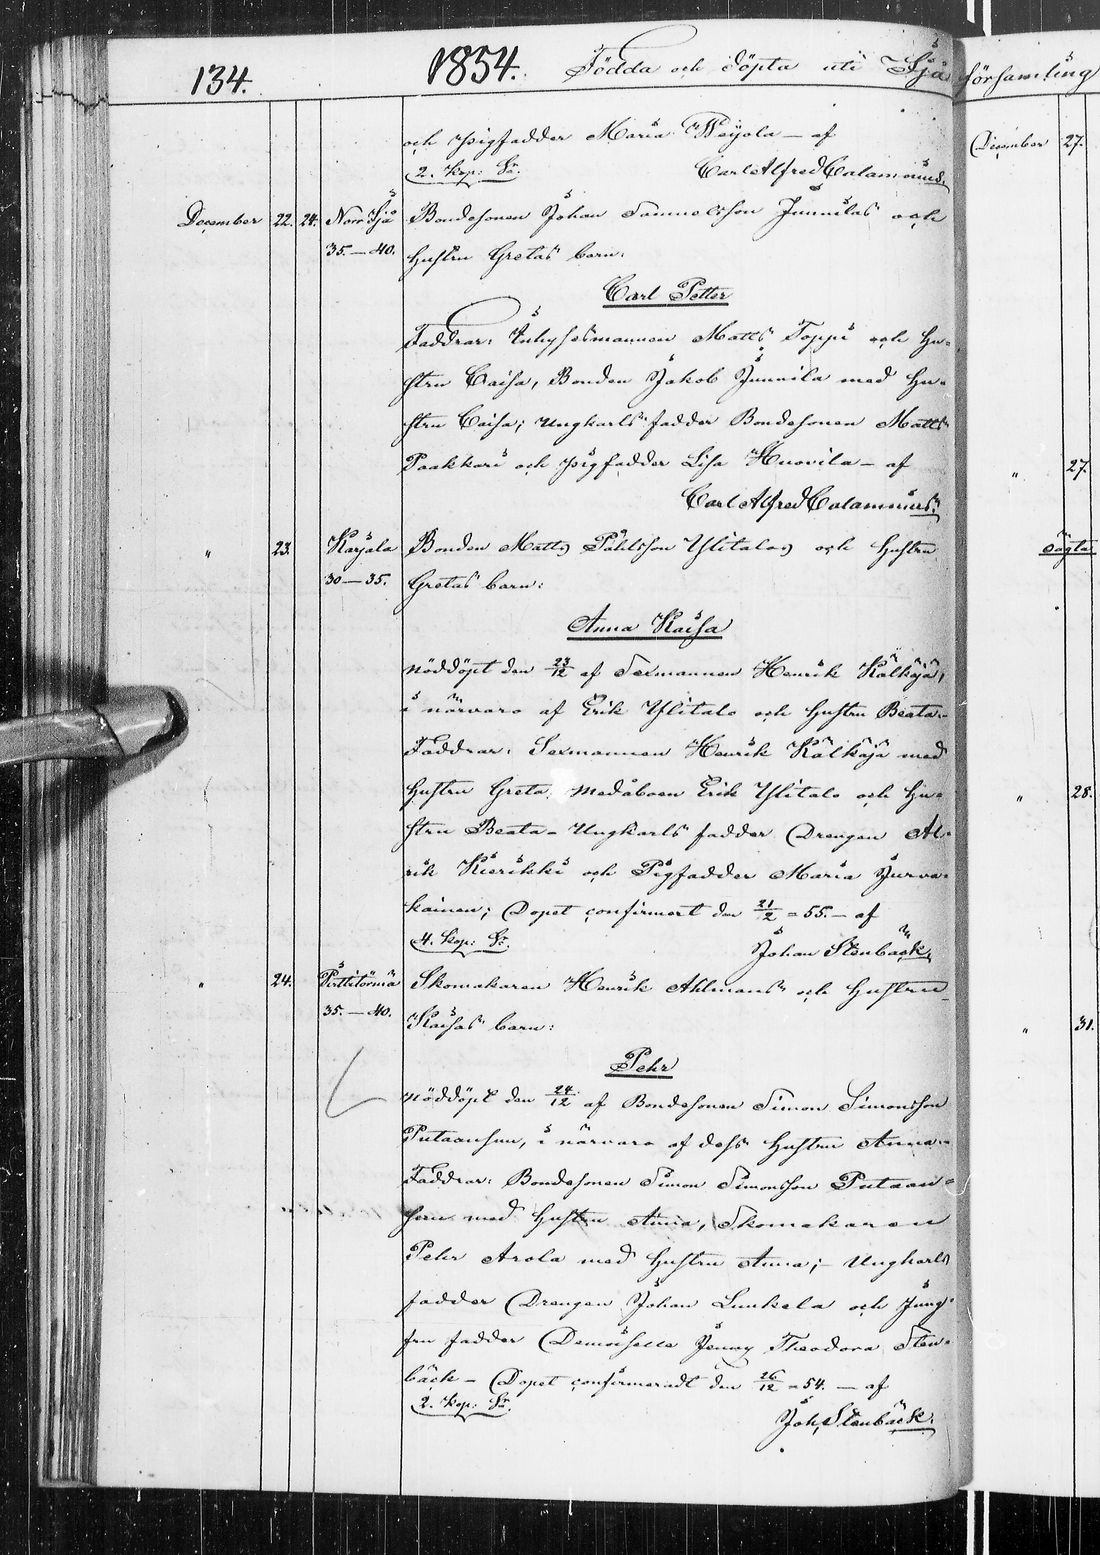 134.
1854. Födda och döpta uti Ijå
församling
och pigfadder Maria Weijola – af
2. kop: Sr.
Carl Alfred Calamnius.
December 22. 24. Norr Ijå Bondesonen Johan Samuelsson Junnilas och
35.–40. hustru Gretas barn:
Carl Petter
Faddrar: Inhysesmannen Matts Toppi och hu-
stru Caisa, Bonden Jakob Junnila med hu-
stru Caisa; Ungkarls fadder Bondesonen Matts
Paakkari och pigfadder Lisa Huovila – af
Carl Alfred Calamnius.
" 23. Karjala Bonden Matts Påhlsson Ylitalos och hustru
30–35. Gretas barn:
Anna Kaisa
nöddöpt den 23/12 af Sexmannen Henrik Kälkäjä,
i närvaro af Erik Ylitalo och hustru Beata.
Faddrar: Sexmannen Henrik Kälkäjä med
hustru Greta, medåboen Erik Ylitalo och hu-
stru Beata – Ungkarls fadder Drengen Al-
rik Kierikki och Pigfadder Maria Jurva-
kainen; Dopet confirmert den 21/2 = 55. – af
4. kop: Sr.
Johan Stenbäck.
" 24. Pirttitörmä Skomakaren Henrik Ahlmans och hustru
35.–40. Kaisas barn:
Pehr
nöddöpt den 24/12 af Bondesonen Simon Simonsson
Putaansuu, i närvaro af dess hustru Anna.
Faddrar: Bondesonen Simon Simonsson Putaan-
suu med hustru Anna, Skomakaren
Pehr Arola med hustru Anna; – Ungkarls
fadder Drengen Johan Lunkela och Jung-
fru fadder Demoiselle Jenny Theodora Sten-
bäck – Dopet confirmeradt den 26/12 = 54. – af
2. kop: Sr.
Joh. Stenbäck.
December 27.
" 27.
" 28.
" 31.